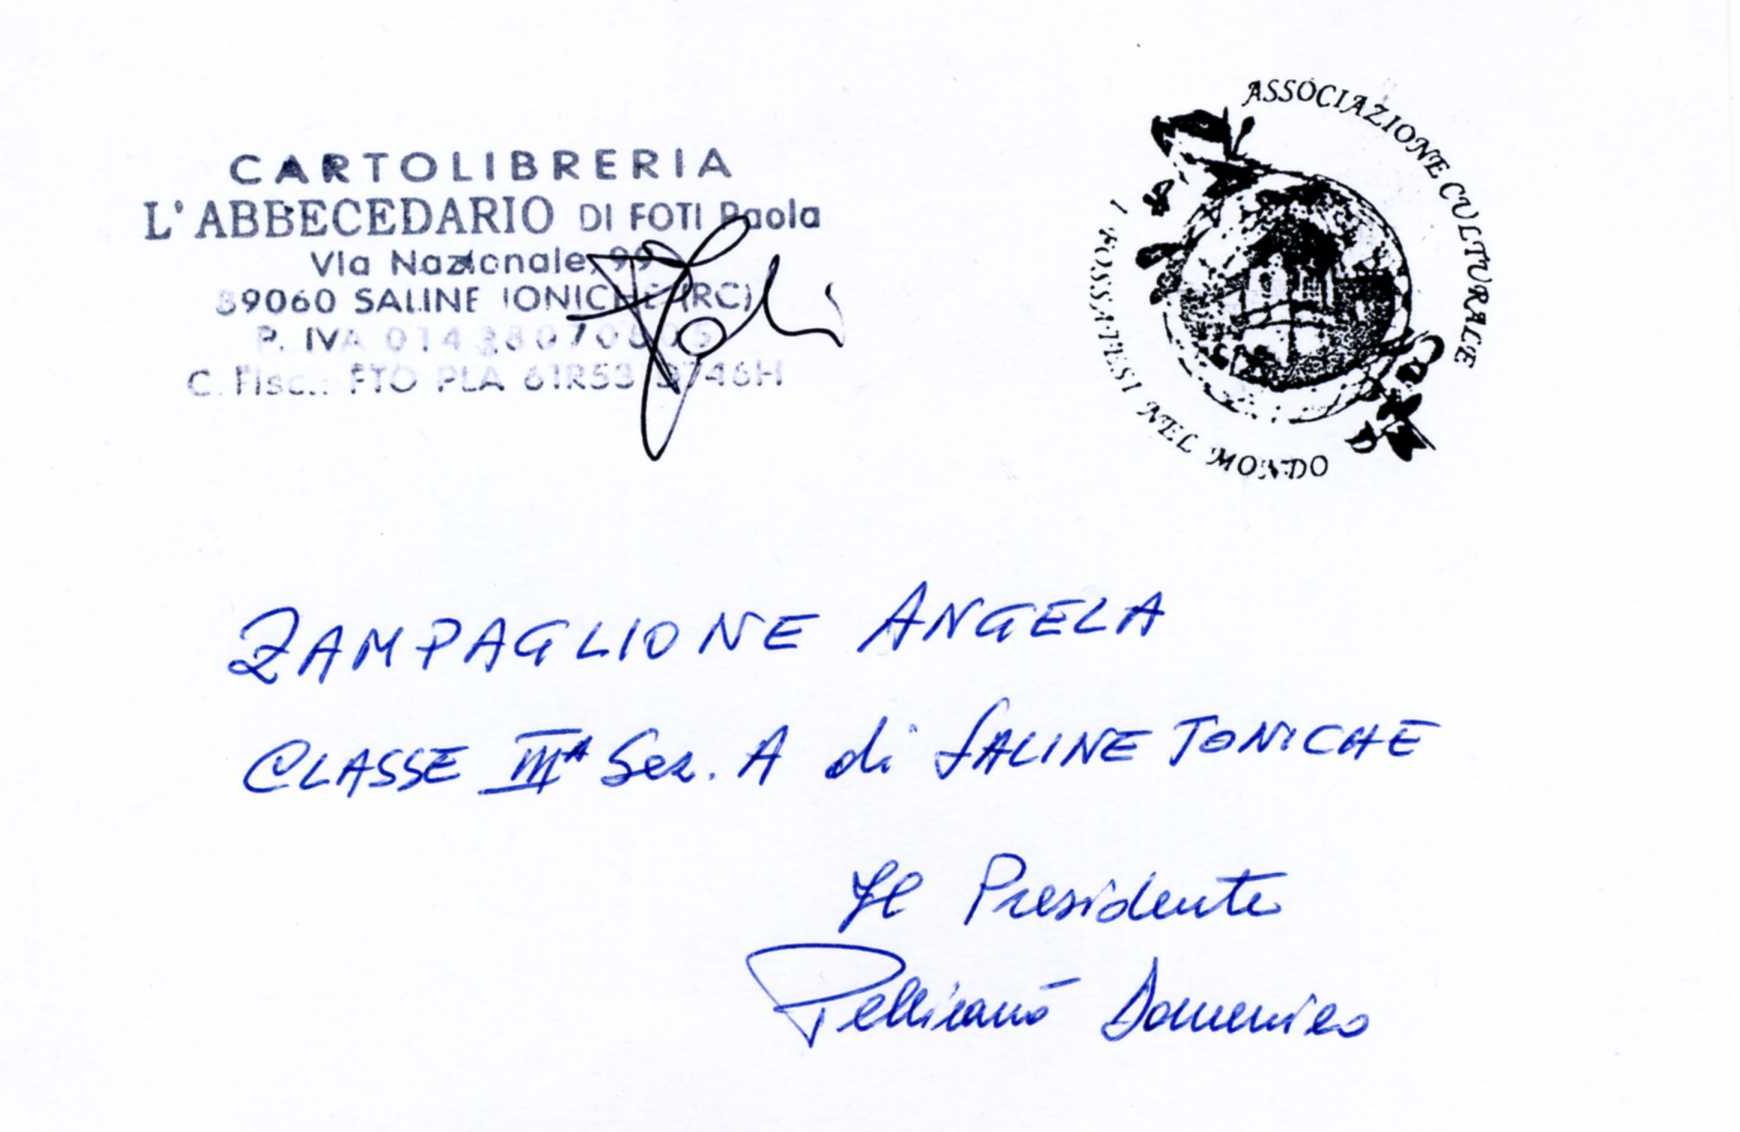 CARTOLIBRERIA
L'ABBECEDARIO DI FOTI Paola
Via Nazionale, 99
89060 SALINE IONICHE (RC)
P. IVA
C. Fisc.: FTO PLA
Foti
ASSOCIAZIONE CULTURALE
I FOSSATESI NEL MONDO
ZAMPAGLIONE ANGELA
CLASSE IIIA Sez. A di SALINE IONICHE
Il Presidente
Pellicanò Domenico